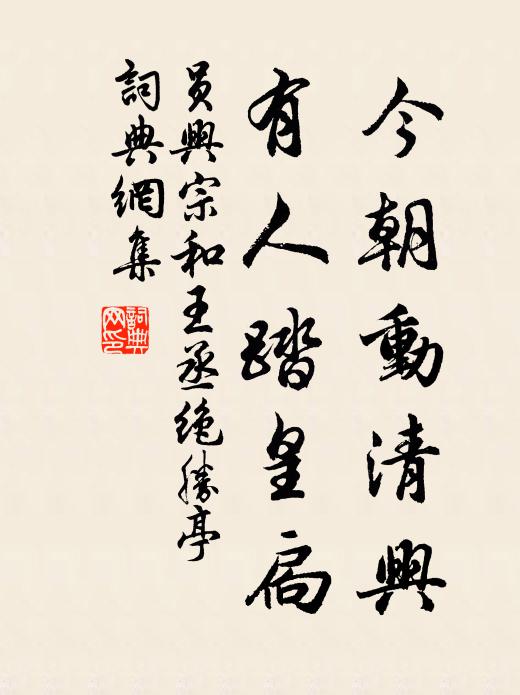 今朝動清興
有人踏皇扃
员興宗和王丞絶勝亭
詞典網集
詞典网印